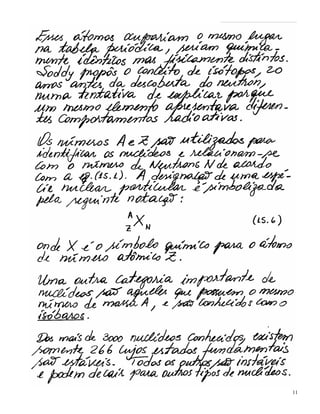 Esses, átomos ocupariam o mesmo lugar
na tabela periódica, seriam química-
mente idênticos mas fisicamente distintos.
Soddy propôs o conceito, de isótopos, 20
anos antes da descoberta do neutron,
numa tentativa de explicar porque
um mesmo elemento apresentava diferen-
tes comportamentos radioativos.
Os números A e Z são utilizados para
identificar os nuclídeos e relacionam-se
com o número de neutrons N de acordo
com a eq. (15.1). A designação de uma espé-
cie nuclear particular é simbolizada
pela seguinte notação:
A
Z X N (15.6)
onde X é o símbolo químico para o átomo
de número atômico Z.
Uma outra categoria importante de
nuclídeos, são aqueles que possuem o mesmo
número de massa A, e são conhecidos como
isóbaros.
Dos mais de 3000 nuclídeos conhecidos, existem
somente 266 cujos estados fundamentais
são estáveis. Todos os outros são instáveis
e podem decair para outros tipos de nuclídeos.
11